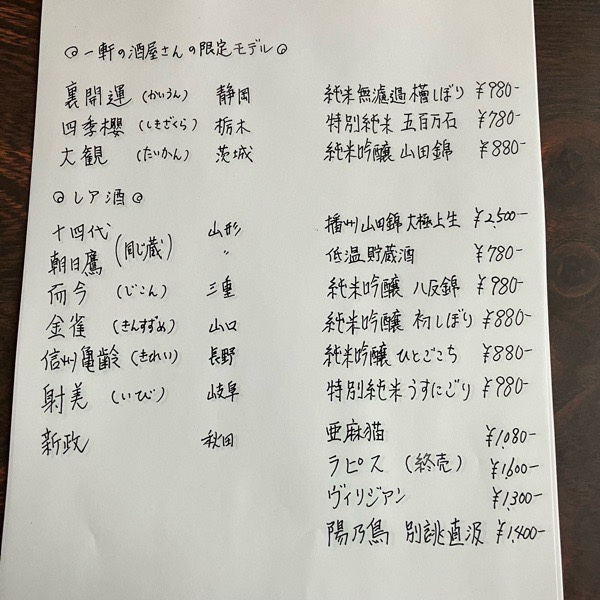 ◎一軒の酒屋さんの限定モデル◎
裏開運 (かいうん) 静岡 純米無濾過槽しぼり ¥980-
四季櫻 (しきざくら) 栃木 特別純米 五百万石 ¥780-
大観 (たいかん) 茨城 純米吟醸 山田錦 ¥880-
◎レア酒◎
十四代 (同じ蔵) 山形 播州山田錦 大極上生 ¥2,500-
朝日鷹 〃 低温貯蔵酒 ¥780-
而今 (じこん) 三重 純米吟醸 八反錦 ¥980-
金雀 (きんすずめ) 山口 純米吟醸 初しぼり ¥880-
信州亀齢 (きれい) 長野 純米吟醸 ひとごこち ¥880-
射美 (いび) 岐阜 特別純米 うすにごり ¥980-
新政 秋田 亜麻猫 ¥1,080-
ラピス (終売) ¥1,600-
ヴィリジアン ¥1,300-
陽乃鳥 別誂直汲 ¥1,400-